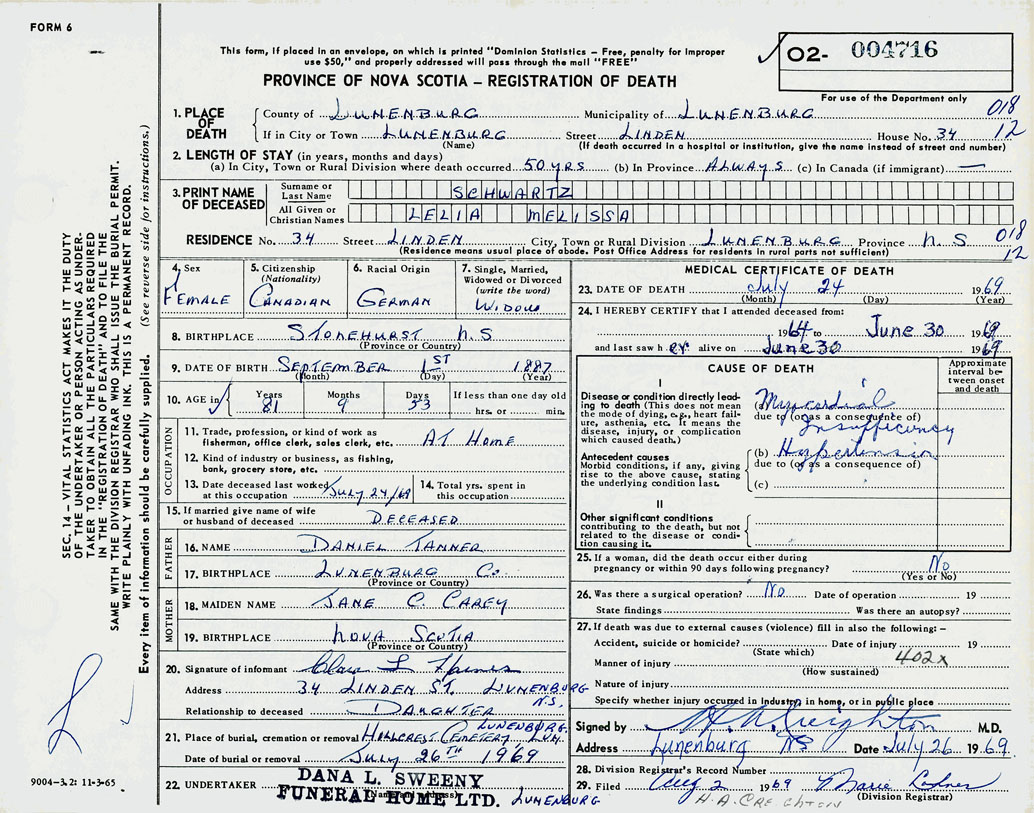 FORM 6
This form, if placed in an envelope, on which is printed "Dominion Statistics – Free, penalty for improper
use $50," and properly addressed will pass through the mail "FREE"
PROVINCE OF NOVA SCOTIA – REGISTRATION OF DEATH
O2- 004716
For use of the Department only
1. PLACE OF DEATH County of LUNENBURG Municipality of LUNENBURG 018
If in City or Town LUNENBURG Street LINDEN House No. 34 12
(Name) (If death occurred in a hospital or institution, give the name instead of street and number)
2. LENGTH OF STAY (in years, months and days)
(a) In City, Town or Rural Division where death occurred 50 YRS (b) In Province ALWAYS (c) In Canada (if immigrant) —
3. PRINT NAME OF DECEASED Surname or Last Name SCHWARTZ
All Given or Christian Names LELIA MELISSA
RESIDENCE No. 34 Street LINDEN City, Town or Rural Division LUNENBURG Province N.S 018
(Residence means usual place of abode. Post Office Address for residents in rural parts not sufficient) 12
4. Sex FEMALE
5. Citizenship (Nationality) CANADIAN
6. Racial Origin GERMAN
7. Single, Married, Widowed or Divorced (write the word) WIDOW
8. BIRTHPLACE STONEHURST N.S
(Province or Country)
9. DATE OF BIRTH SEPTEMBER 1ST 1887
(Month) (Day) (Year)
10. AGE in Years 81 Months 9 Days 53 If less than one day old hrs. or min.
OCCUPATION
11. Trade, profession, or kind of work as
fisherman, office clerk, sales clerk, etc. AT HOME
12. Kind of industry or business, as fishing,
bank, grocery store, etc.
13. Date deceased last worked at this occupation JULY 24/69 14. Total yrs. spent in this occupation
15. If married give name of wife
or husband of deceased DECEASED
FATHER
16. NAME DANIEL TANNER
17. BIRTHPLACE LUNENBURG Co.
(Province or Country)
MOTHER
18. MAIDEN NAME JANE C. CAREY
19. BIRTHPLACE NOVA SCOTIA
(Province or Country)
20. Signature of informant
Address 34 LINDEN ST. LUNENBURG N.S.
Relationship to deceased DAUGHTER
21. Place of burial, cremation or removal HILLCREST CEMETERY LUNENBURG LUN.
Date of burial or removal JULY 26TH 1969
22. UNDERTAKER DANA L. SWEENY
FUNERAL HOME LTD. LUNENBURG
(Name and address)
MEDICAL CERTIFICATE OF DEATH
23. DATE OF DEATH July 24 1969
(Month) (Day) (Year)
24. I HEREBY CERTIFY that I attended deceased from:
1964 to June 30 1969
and last saw her alive on June 30 1969
CAUSE OF DEATH
Approximate interval between onset and death
I
Disease or condition directly leading to death (This does not mean the mode of dying, e.g., heart failure, asthenia, etc. It means the disease, injury, or complication which caused death.)
(a) Myocordial
due to (or as a consequence of)
Insufficiency
Antecedent causes
Morbid conditions, if any, giving rise to the above cause, stating the underlying condition last.
(b) Hypertension
due to (or as a consequence of)
(c)
II
Other significant conditions
contributing to the death, but not related to the disease or condition causing it.
25. If a woman, did the death occur either during
pregnancy or within 90 days following pregnancy? No
(Yes or No)
26. Was there a surgical operation? No Date of operation 19
State findings Was there an autopsy?
27. If death was due to external causes (violence) fill in also the following: –
Accident, suicide or homicide? Date of injury 19
(State which) 402x
Manner of injury
(How sustained)
Nature of injury
Specify whether injury occurred in industry, in home, or in public place
Signed by H A Creighton M.D.
Address Lunenburg NS Date July 26 1969
28. Division Registrar's Record Number
29. Filed Aug 2 1969 Marie
H. A. CREIGHTON (Division Registrar)
SEC. 14 – VITAL STATISTICS ACT MAKES IT THE DUTY
OF THE UNDERTAKER OR PERSON ACTING AS UNDER-
TAKER TO OBTAIN ALL THE PARTICULARS REQUIRED
IN THE "REGISTRATION OF DEATH" AND TO FILE THE
SAME WITH THE DIVISION REGISTRAR WHO SHALL ISSUE THE BURIAL PERMIT.
WRITE PLAINLY WITH UNFADING INK. THIS IS A PERMANENT RECORD.
Every item of information should be carefully supplied. (See reverse side for instructions.)
9004-3.2: 11-3-65